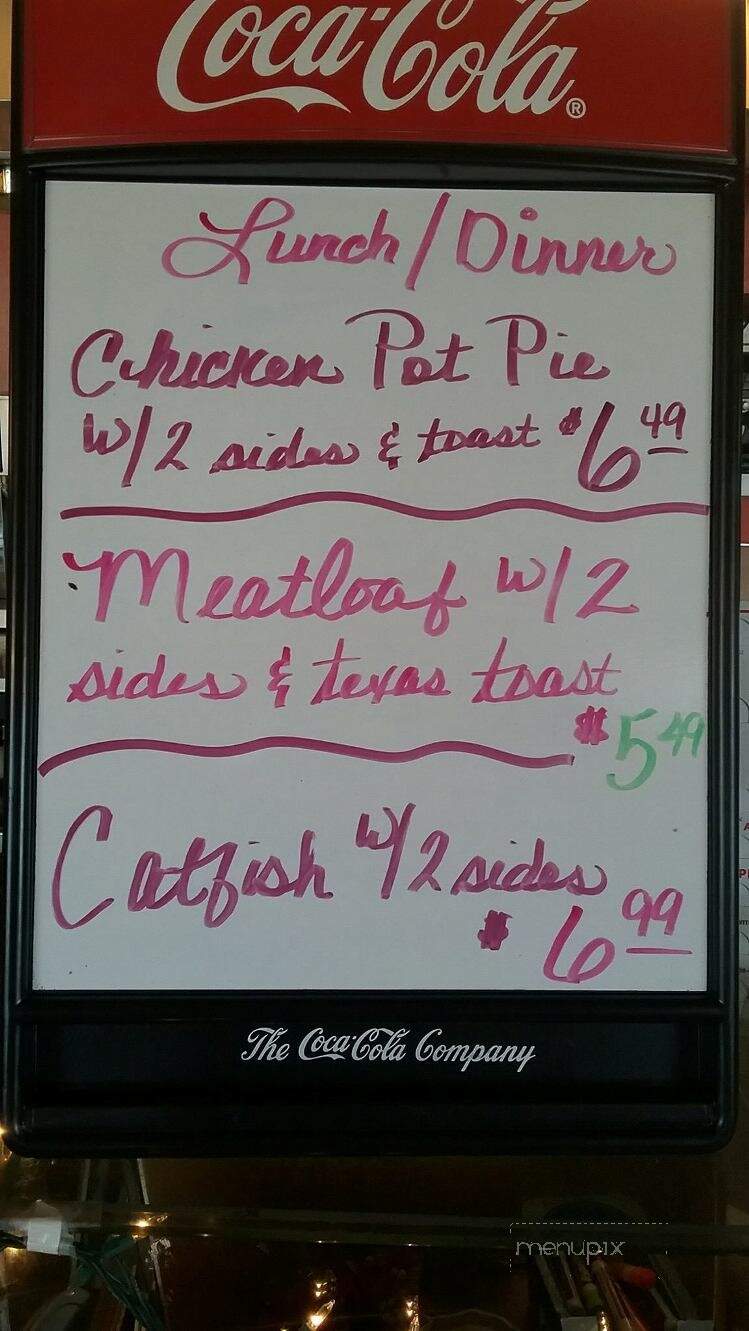 Coca-Cola®
Lunch/Dinner
Chicken Pot Pie
w/2 sides & toast $6.49
Meatloaf w/2
sides & texas toast
$5.49
Catfish w/2 sides
$6.99
The Coca-Cola Company
menupix